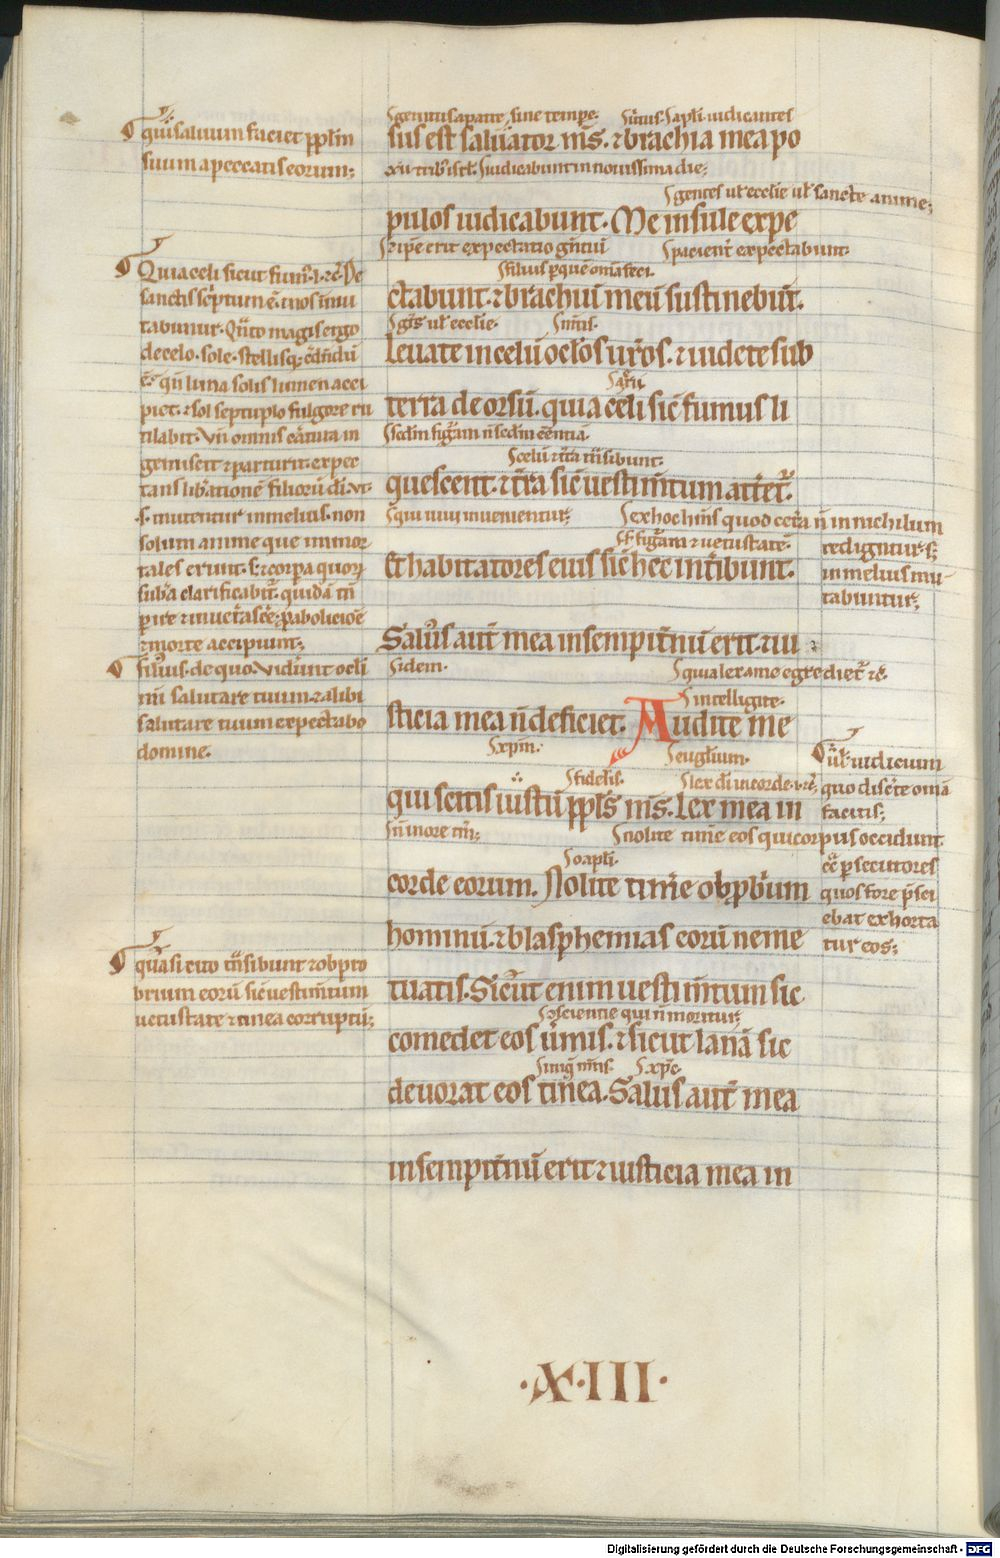 qui saluum faciet pplm
suum a peccatis eorum;
Quia celi sicut fum᛫ l᛫ rł᛫ De
sanctis scriptum ē᛫ inos inmu
tabimur᛫ Qnto magis ergo
de celo᛫ sole᛫ stellisq; cdndū
ē᛫ qn luna solis lumen acci
piet᛫ ⁊ sol septuplo fulgore ru
tilabit᛫ Vn omnis catura in
gemiscit ⁊ parturit᛫ expec
tans libationē filiorū di᛫ vt᛫
᛫s᛫ mutentur in melius᛫ non
solum anime que inmor
tales erunt᛫ s; ⁊ corpa quorum
suba clarificabit᛫ quidā tn
pire ⁊ inuetasce᛫ pabolicioē
⁊ morte accipiunt;
filius᛫ de quo᛫ Vidunt ocli
mi salutare tuum ⁊ alibi
salutare tuum expectabo
domine᛫
quasi cito tnsibunt ⁊ obpro
brium eorū sic uestimtum
uetustate ⁊ tinea corruptū;
genitus a patre sine tempe᛫ apli iudicantes
sus est saluator ms᛫ ⁊ brachia mea po
xii trib᛫ isrl᛫ iudicabunt in nouissima die;
gentes ul ecclie ul sancte anime;
pulos iudicabunt᛫ Me insule expe
ipse erit expectatio gntiū pacient expectabunt᛫
filius p quē omia feci᛫
ctabunt᛫ ⁊ brachiū meū sustinebut᛫
gtes ul ecclie᛫
Leuate in celū oclos uros᛫ ⁊ uidete sub
terra deorsū᛫ quia celi sic fumus li
scdm figam n scdm eentiā᛫
celū ⁊ tra tnsibunt᛫
quescent᛫ ⁊ tra sic uestimtum atteret᛫
qui uiui inuenientur; ex hoc hms quod cetera n in nichilum
figam ⁊ uetustate᛫ redigntur s;
Et habitatores eius sic hec intibunt᛫ in melius mu
tabuntur;
Salus aut mea insempitnū erit ⁊ iu
idem᛫ quia lex a me egrediet᛫ ⁊ c᛫
intelligite᛫
sticia mea n deficiet᛫ Audite me
xpm᛫ euglium᛫
fidelis᛫ lex di in corde᛫ i᛫ r᛫
qui scitis iustū ppls ms᛫ Lex mea in
n in ore tm; nolite time eos qui corpus occidunt
o apli᛫
corde eorum᛫ Nolite timre obpbrium
hominū ⁊ blasphemias eorū ne me
tuatis᛫ Sicut enim uestimtum sic
oscientie qui n moritur;
comedet eos uermis᛫ ⁊ sicut lanā sic
xpc
deuorat eos tinea᛫ Salus aut mea
insempitnū erit ⁊ iusticia mea in
ul iudicium
quo discte omia
facitis;
persecutores
quos fore psci
ebat exhorta
tur eos;
᛫X᛫III᛫
Digitalisierung gefördert durch die Deutsche Forschungsgemeinschaft - DFG